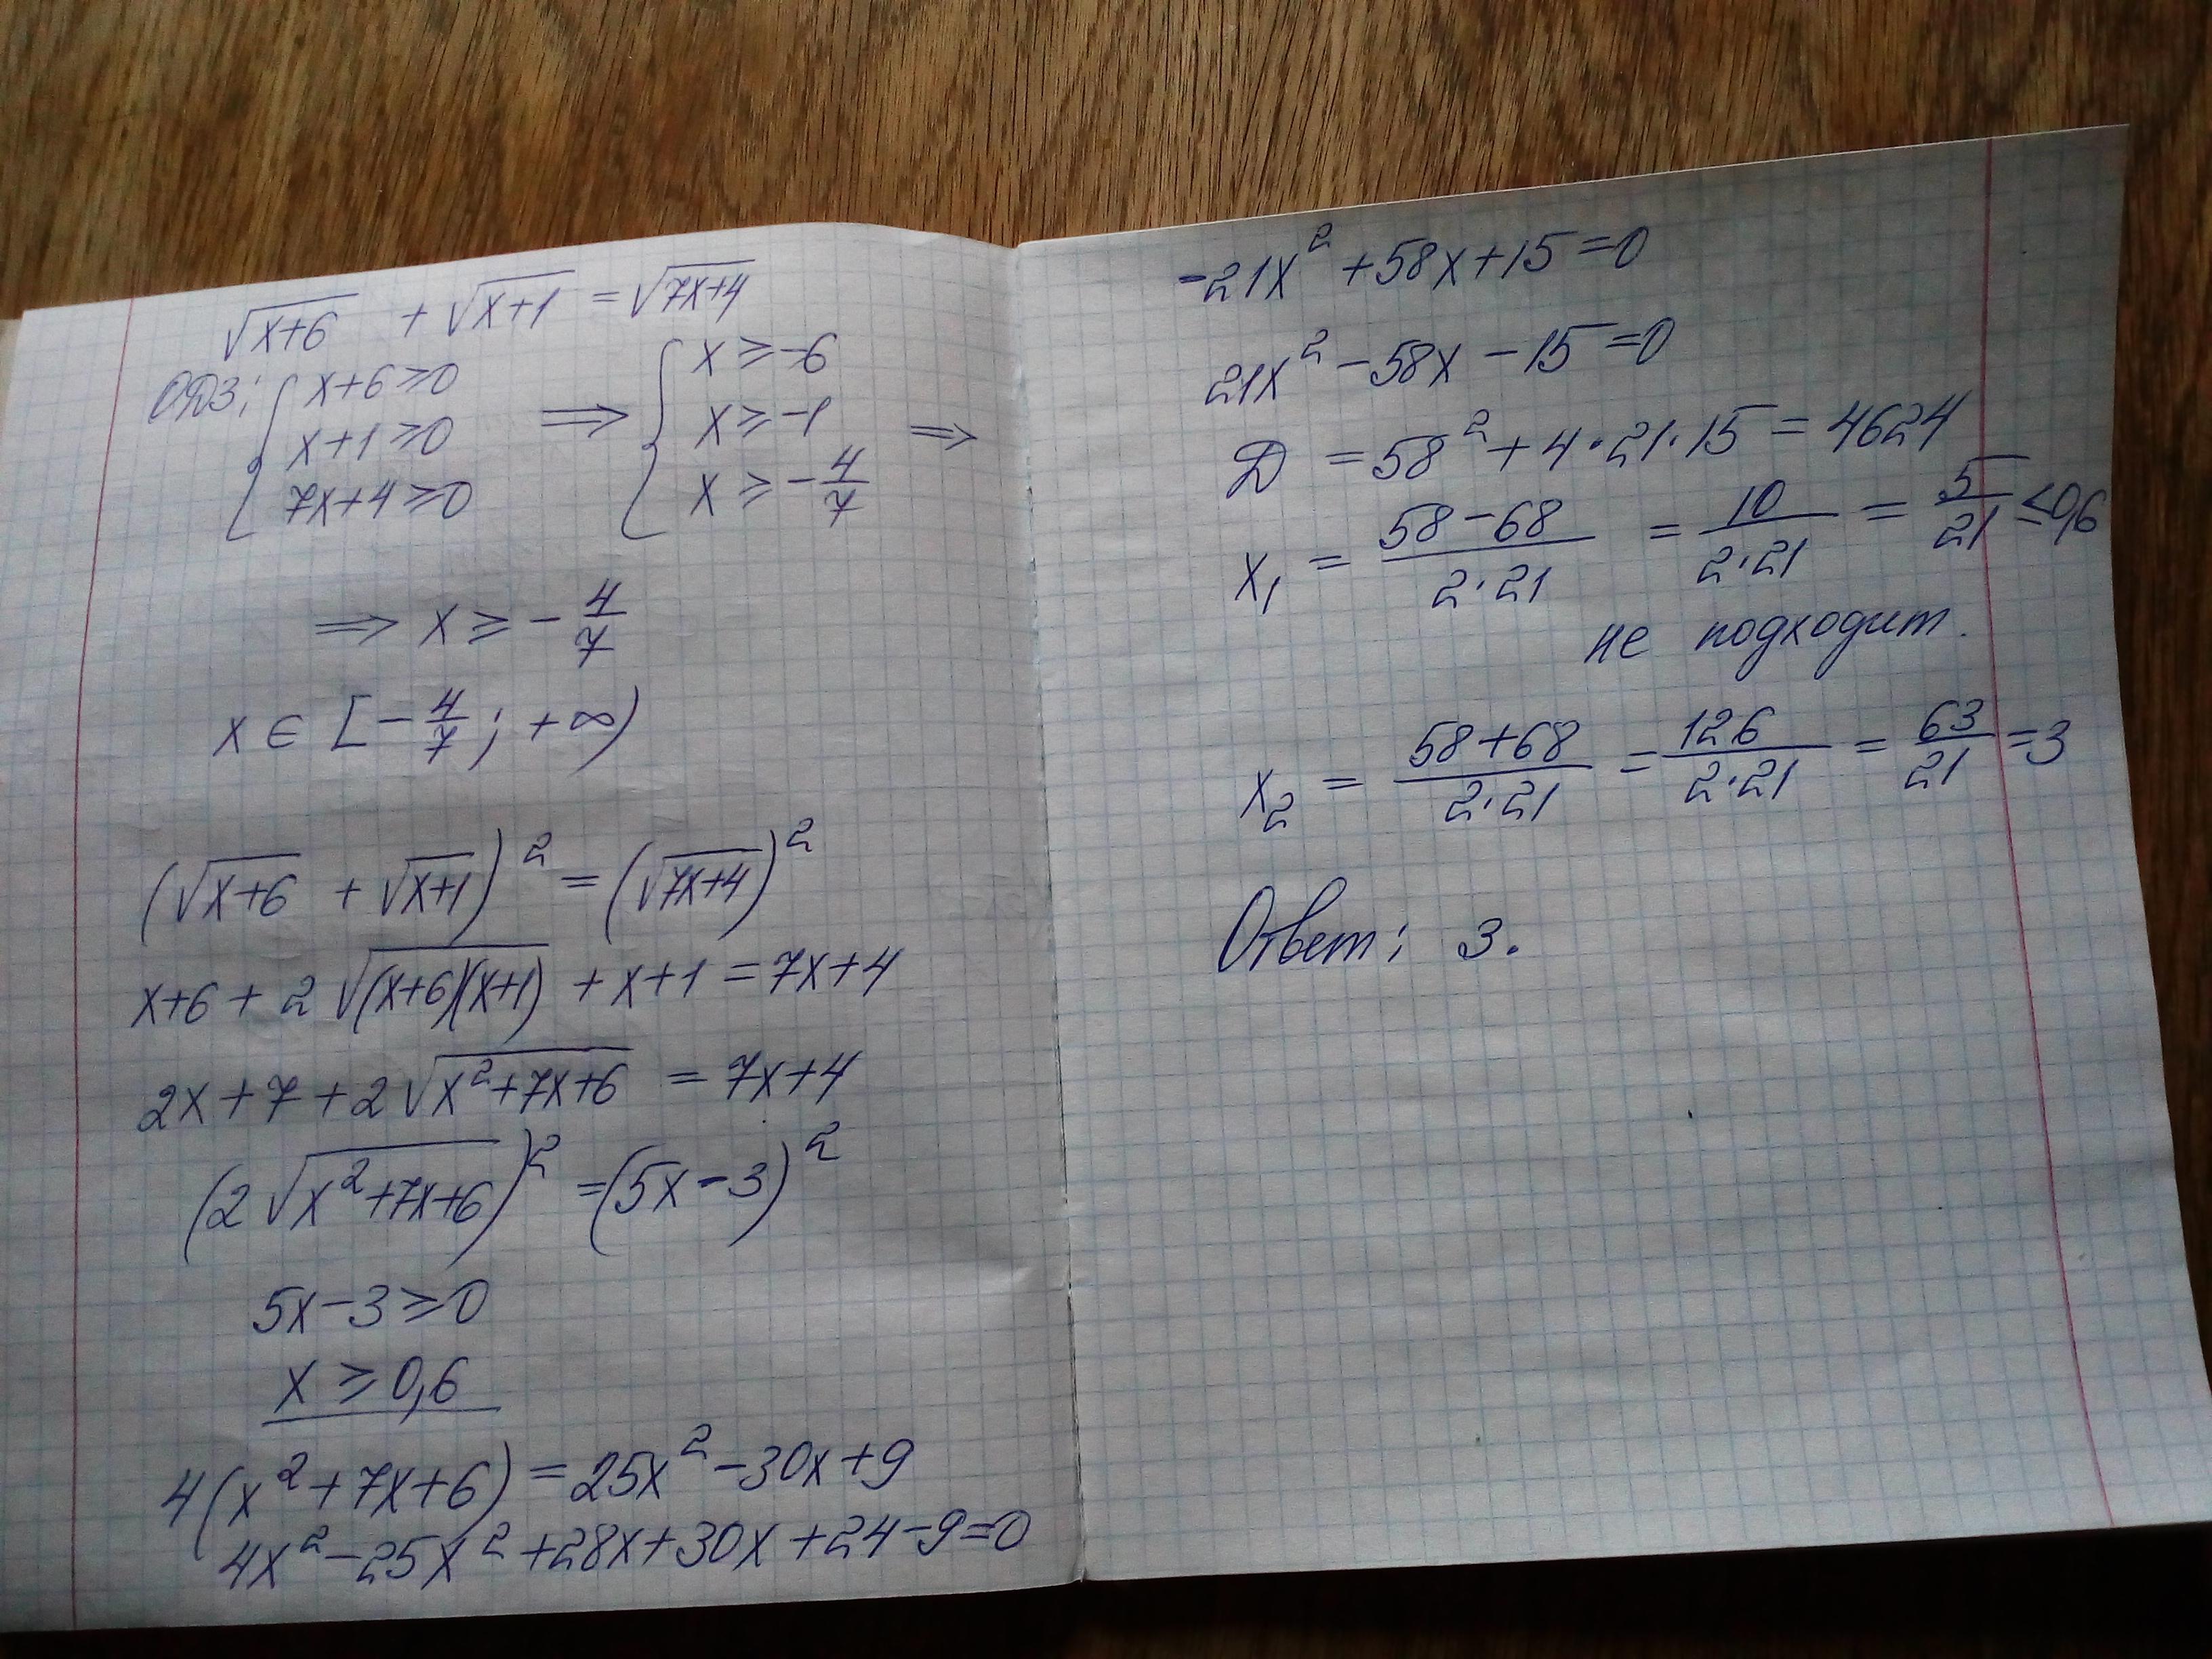 √(x+6) + √(x+1) = √(7x+4)
ОДЗ: { x+6 ≥ 0 ⟹ { x ≥ -6
x+1 ≥ 0 x ≥ -1 ⟹
7x+4 ≥ 0 x ≥ -4/7
⟹ x ≥ -4/7
x ∈ [-4/7; +∞)
(√(x+6) + √(x+1))² = (√(7x+4))²
x+6 + 2√((x+6)(x+1)) + x+1 = 7x+4
2x+7+2√(x²+7x+6) = 7x+4
(2√(x²+7x+6))² = (5x-3)²
5x-3 ≥ 0
x ≥ 0,6
4(x²+7x+6) = 25x²-30x+9
4x²-25x²+28x+30x+24-9=0
-21x²+58x+15=0
21x²-58x-15=0
Д = 58²+4·21·15 = 4624
x₁ = (58-68)/(2·21) = 10/(2·21) = 5/21 ≤ 0,6
не подходит.
x₂ = (58+68)/(2·21) = 126/(2·21) = 63/21 = 3
Ответ: 3.